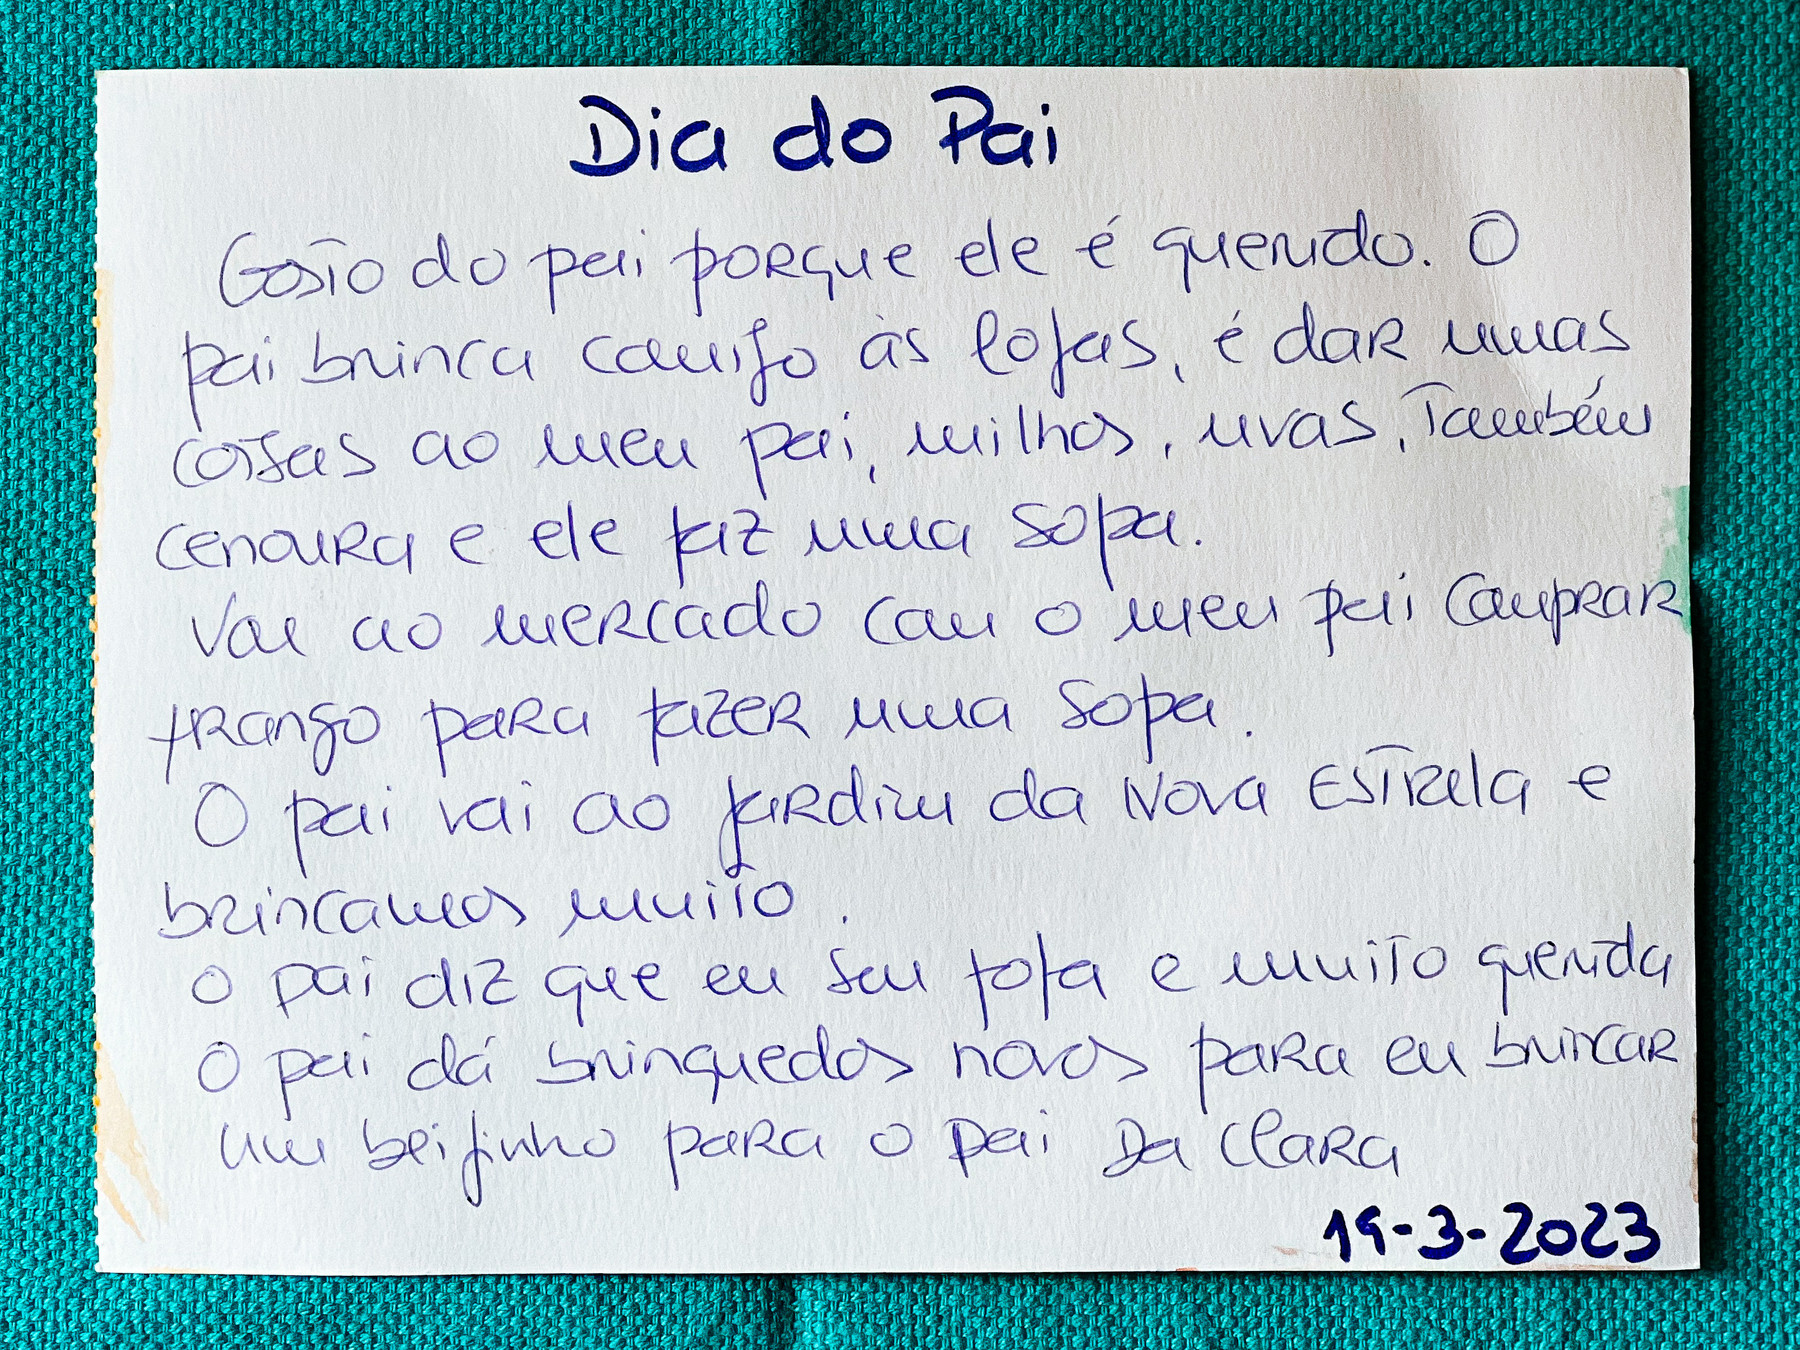 Dia do Pai
Gosto do pai porque ele é querido. O
pai brinca comigo às lojas, é dar umas
coisas ao meu pai, milhos, uvas, também
cenoura e ele faz uma sopa.
Vou ao mercado com o meu pai comprar
frango para fazer uma sopa.
O pai vai ao jardim da Nova Estrela e
brincamos muito.
O pai diz que eu sou fofa e muito querida
O pai dá brinquedos novos para eu brincar
um beijinho para o pai Da Clara
19-3-2023